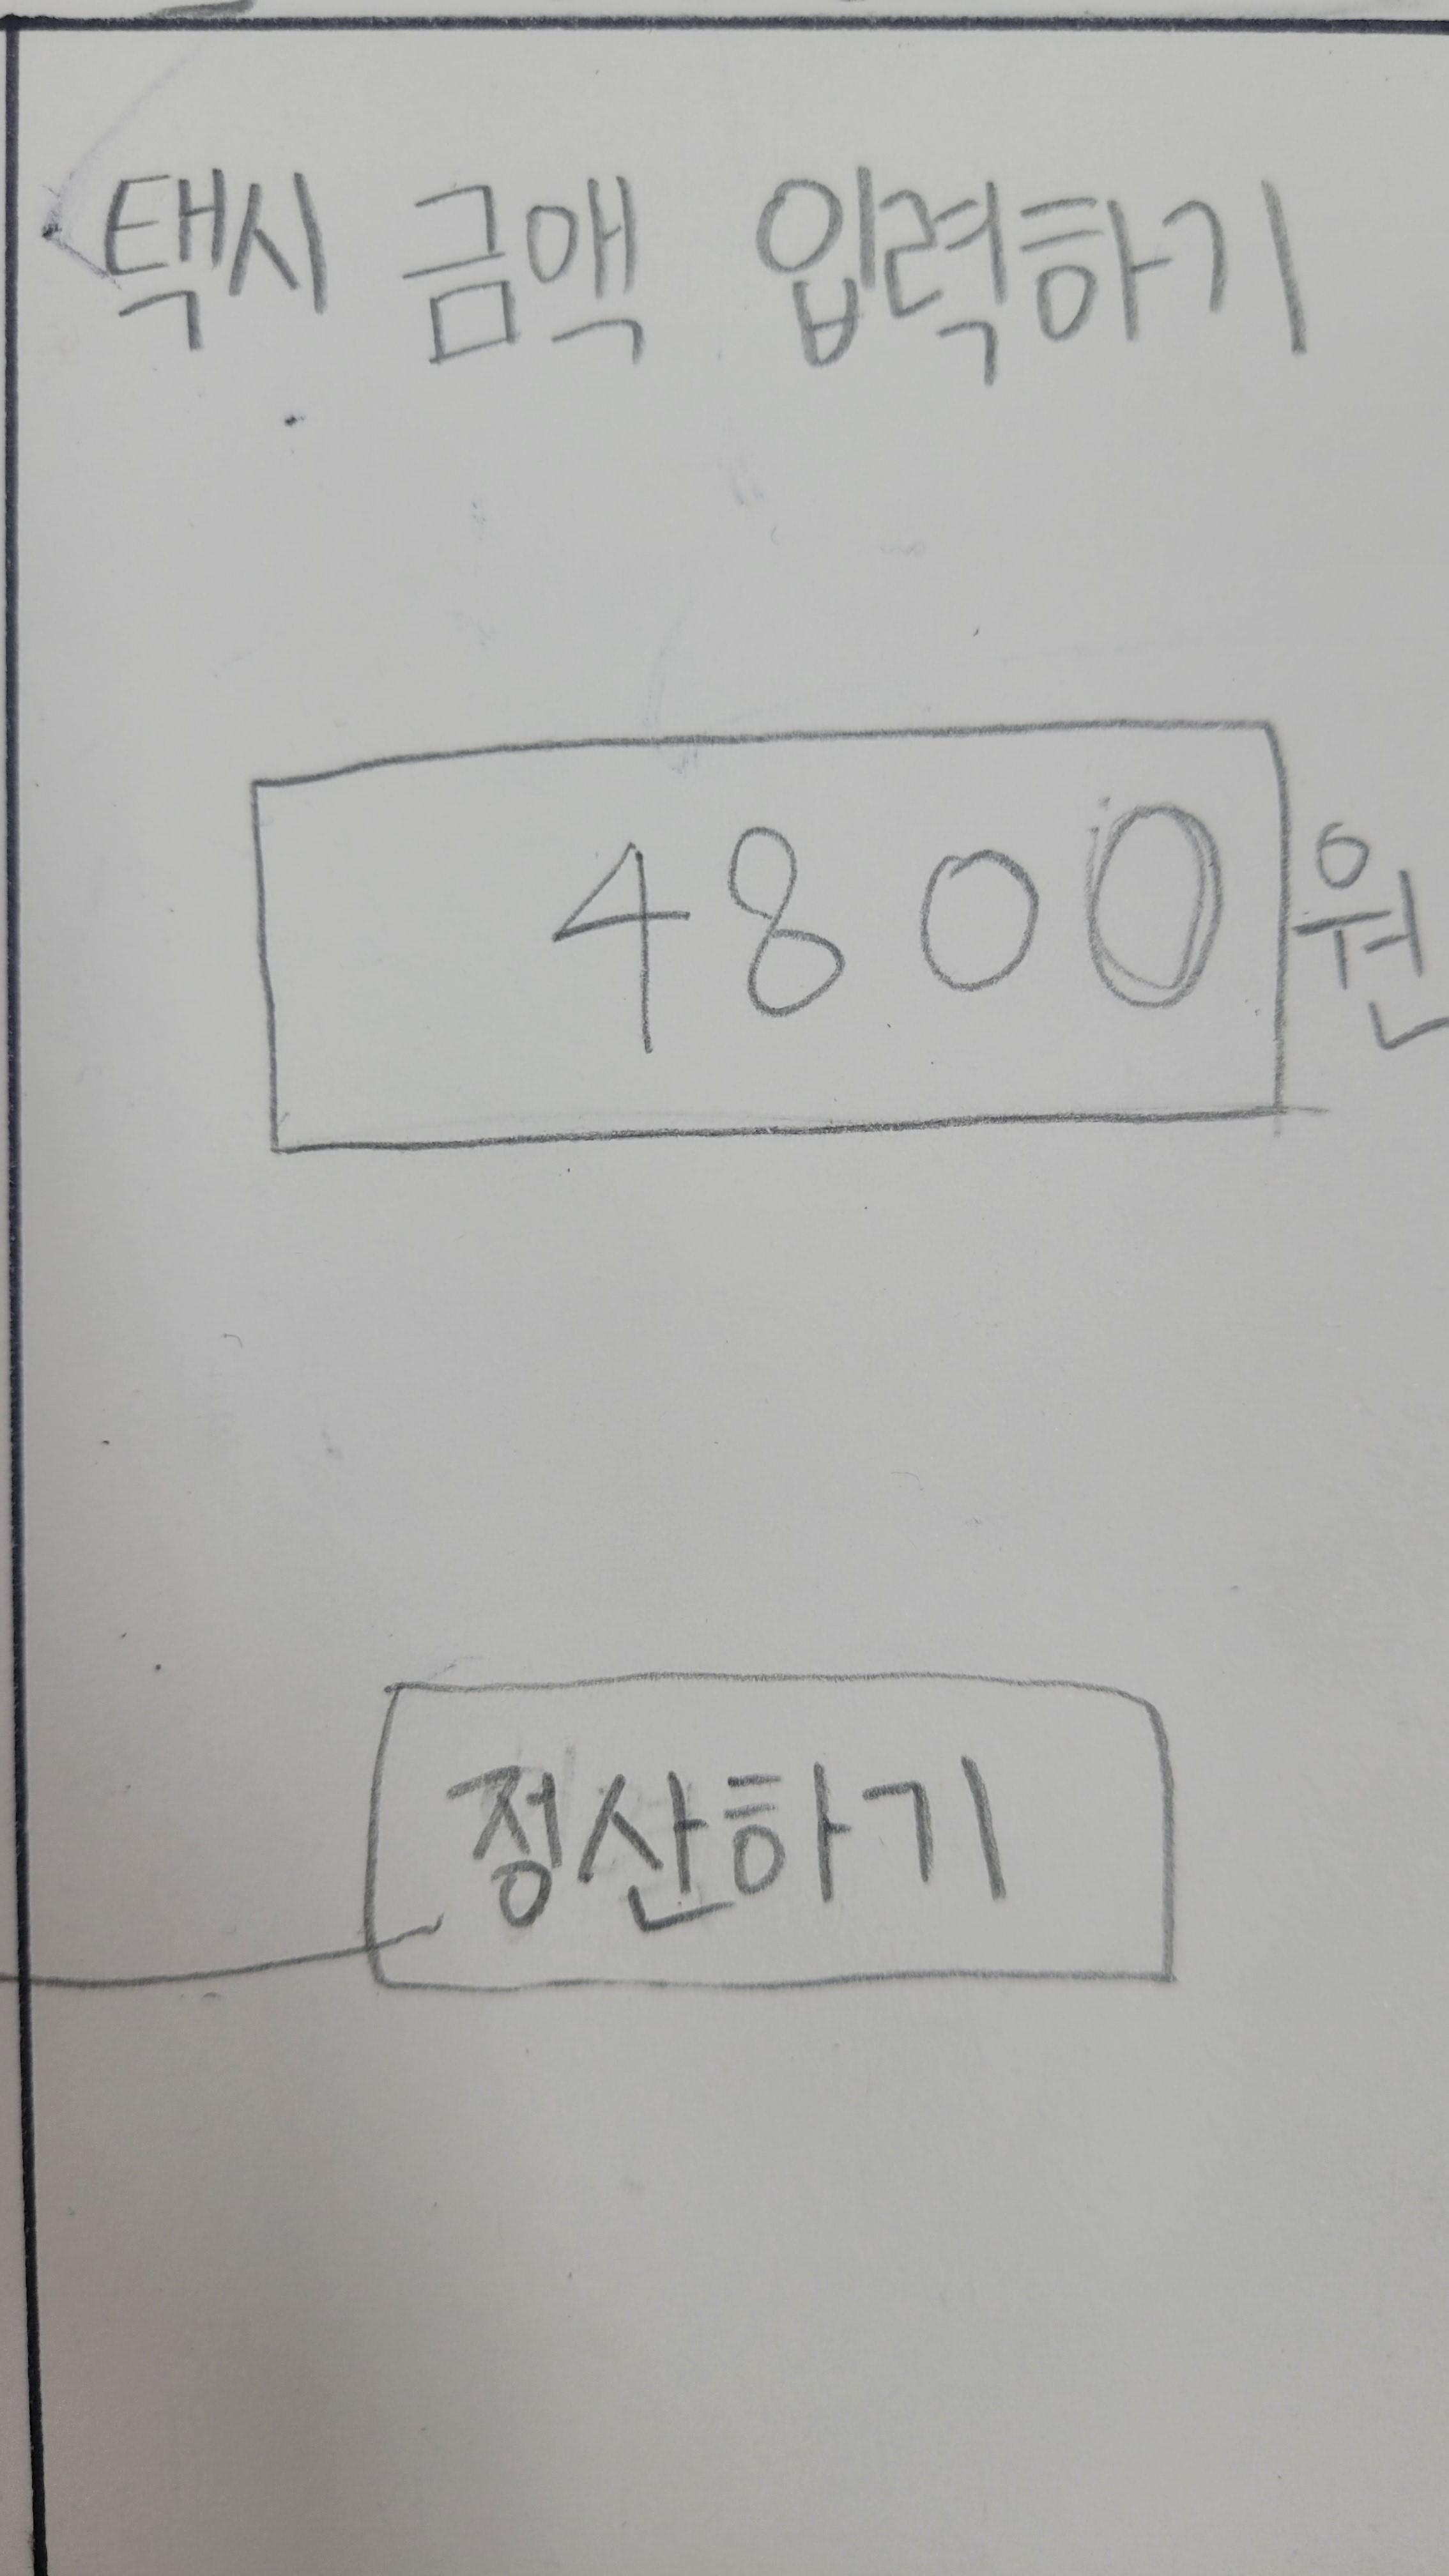 택시 금액 입력하기
4800원
정산하기